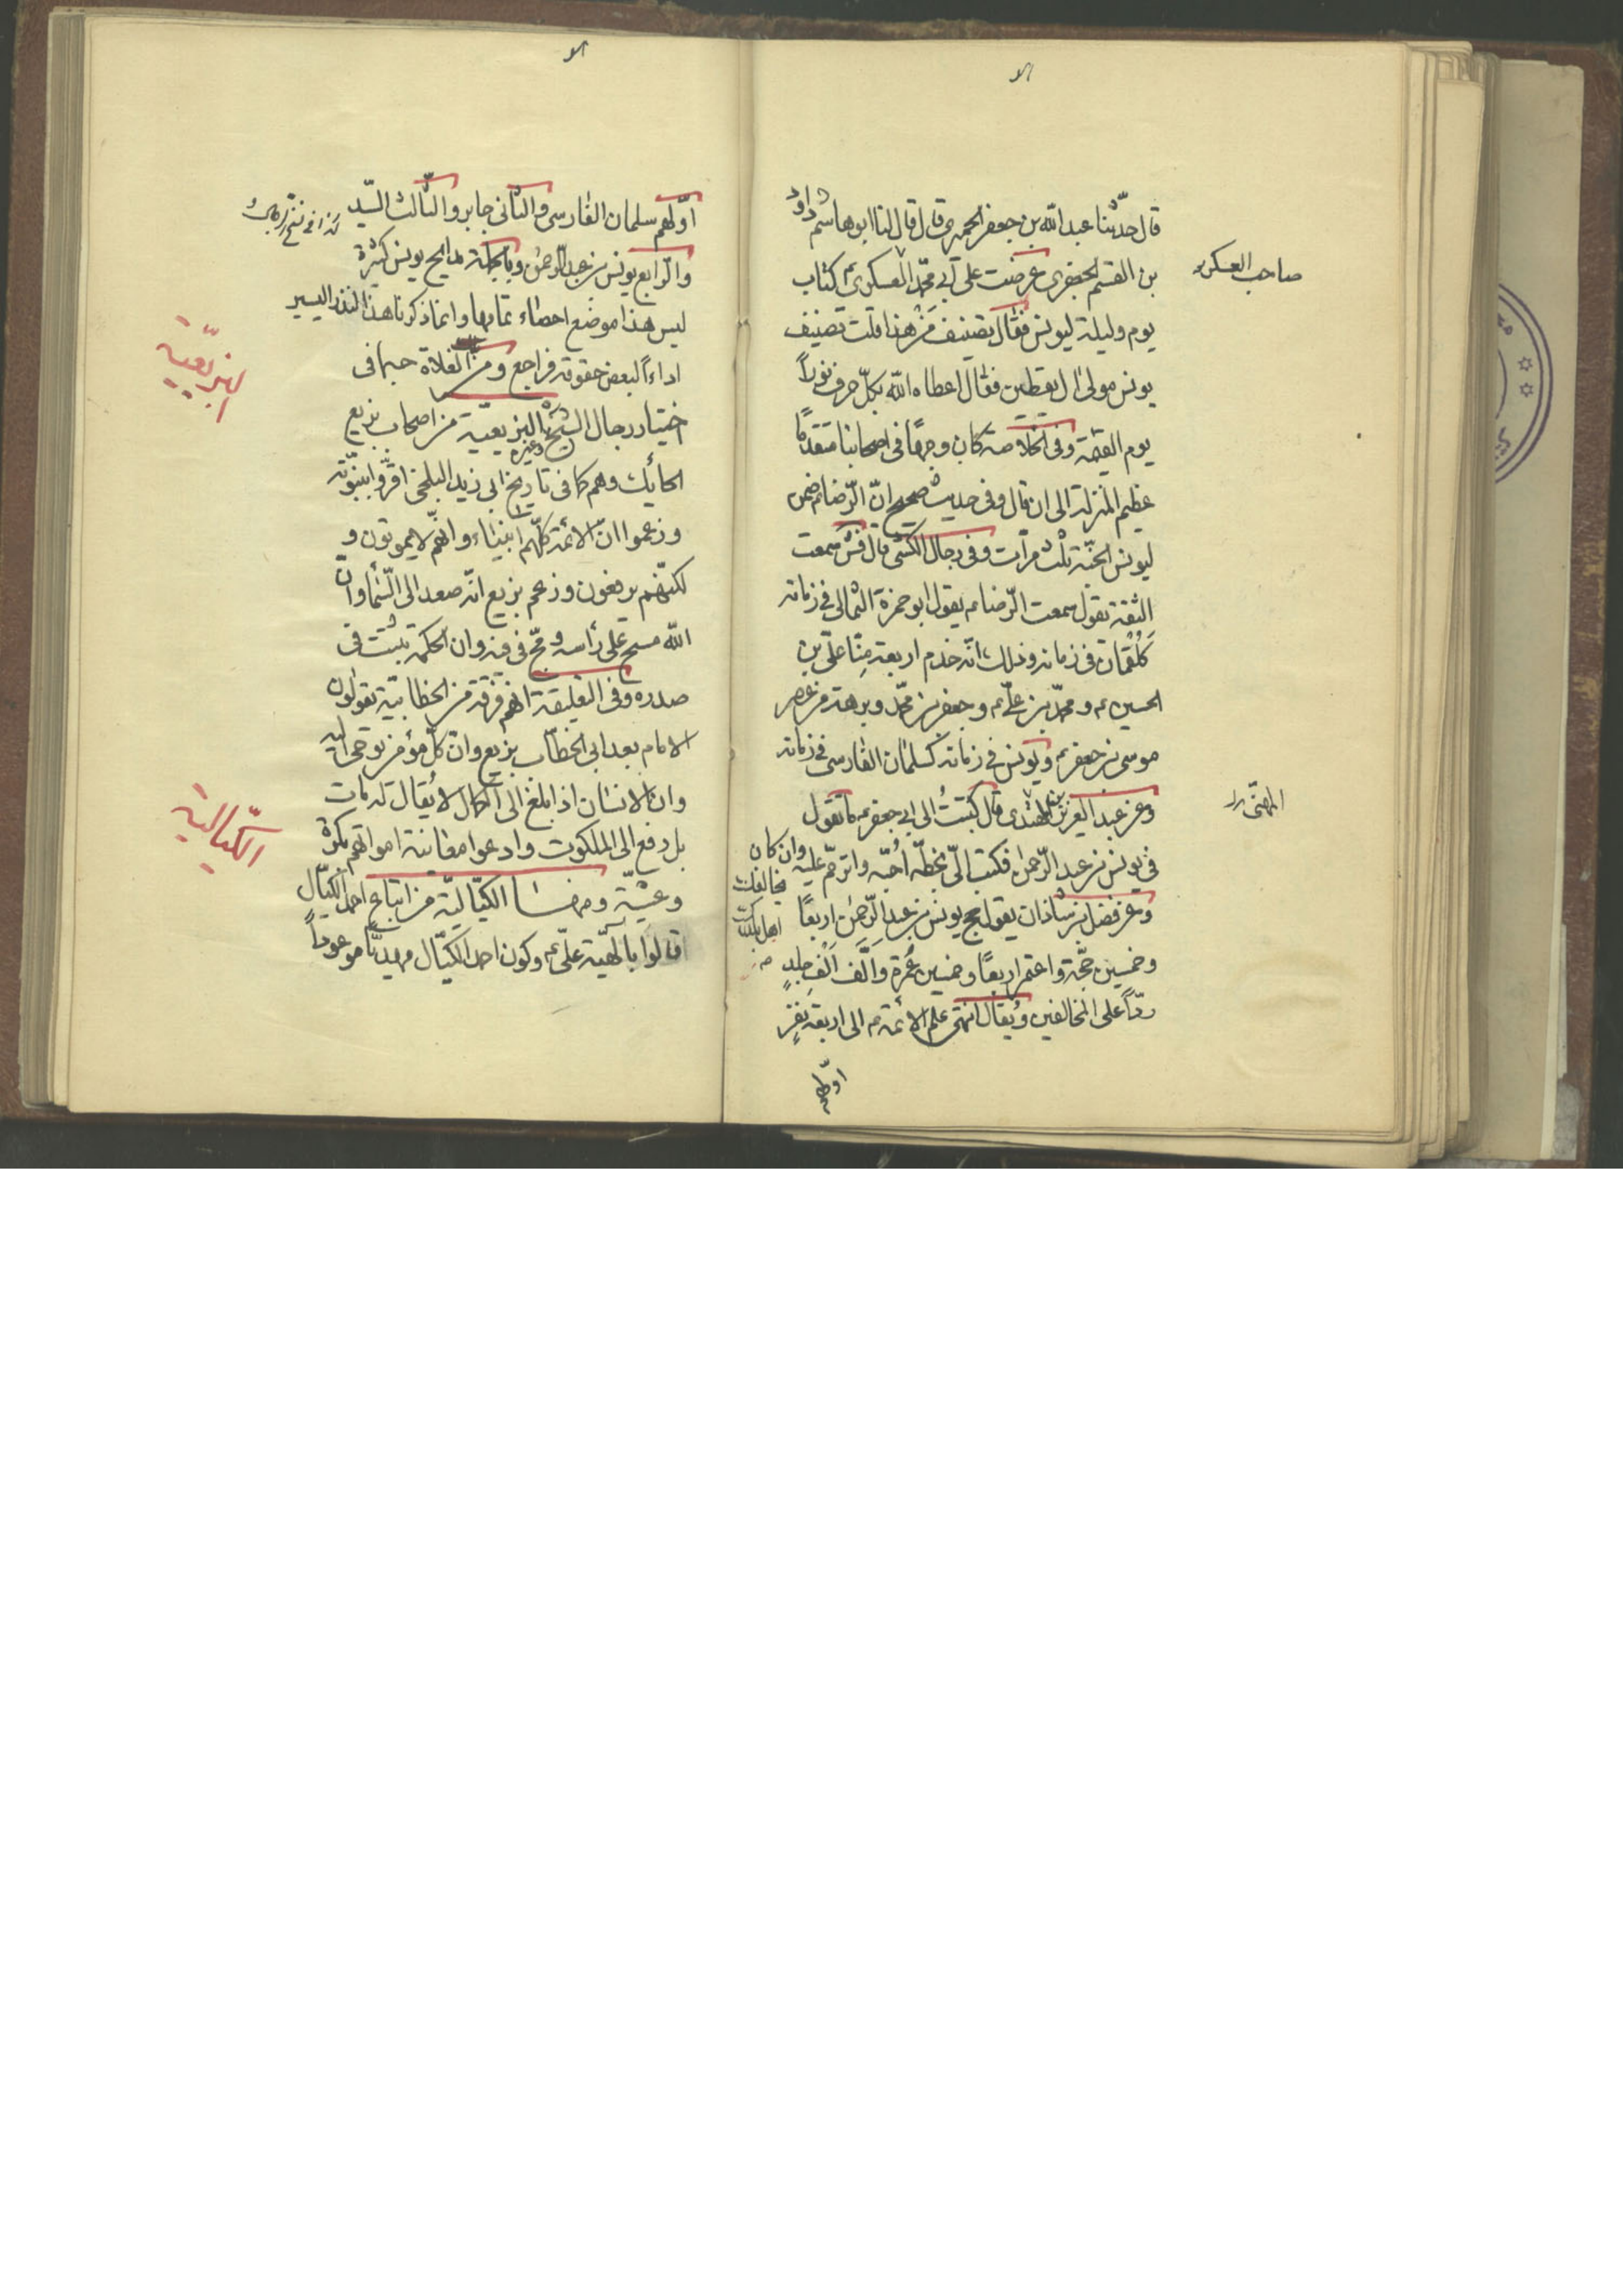 قال حدّثنا عبد الله بن جعفر الحميرى قال قال لنا ابو هاشم داود
بن القسم الجعفرى عرضت على ابى محمّد العسكرى ع كتاب
صاحب العسكر
يوم وليلة ليونس فقال تصنيف مَنْ هذا قلت تصنيف
يونس مولى ال يقطين فقال اعطاه الله بكلّ حرف نوراً
يوم القيمة وفى الخلاصة كان وجهًا فى اصحابنا متقدّمًا
عظيم المنزلة الى ان قال وفى حديث صحيح انّ الرّضا ع ضمن
ليونس الجنّة ثلث مرّات وفى رجال الكشى قال فش سمعت
الثقة يقول سمعت الرّضا ع يقول ابو حمزة الثمالى فى زمانه
كَلُقْمان فى زمانه وذلك انّه خدم اربعة مِنّا علىّ بن
الحسين ع ومحمّد بن علىّ ع وجعفر بن محمّد وبرهة من عصر
موسى بن جعفر ع ويونس فى زمانه كسلمان الفارسى فى زمانه
وعن عبد العزيز بن المهتدى قال كتبتُ الى ابى جعفر ع ما تقول
فى يونس بن عبد الرّحمن فكتب الىّ بخطّه اُحبّه واترحّم عليه وان كان
يخالفك
اهل بلدك
وعن فضل بن شاذان يقول حج يونس بن عبد الرّحمن اربعًا
وخمسين حجّة واعتمر اربعًا وخمسين عُمرة وَالَّفَ اَلْف جلدٍ
ردّاً على المخالفين ويُقال انتهى علم الأئمة ع الى اربعة نفرٍ
اوّلهم
اوّلهم سلمان الفارسى والثّانى جابر والثّالث السّيد
والرّابع يونس بن عبد الرّحمن وبالجملة مدايح يونس كثيرة
ليس هذا موضع احصاء تمامها وانما ذكرنا هذا النذر اليسير
اداءاً لبعض حقوقه فراجع ومن الغلاة حسبما فى
اختيار رجال الشّيخ وغيره البزيعيّة من اصحاب بزيع
البزيعيّة
الحائك وهم كما فى تاريخ ابى زيد البلخى اقرّوا بنبوّته
وزعموا انّ الائمة كلّهم انبياء وانّهم لا يموتون و
لكنّهم يرفعون وزعم بزيع انّه صعد الى السّماء وانّ
الله مسح على رأسه ومجّ فى فيه وان الحكمة تثبت فى
صدره وفى التعليقة انهم فرقة من الخطابيّة تقولون
الامام بعد ابى الخطّاب بزيع وانّ كلّ مؤمن يوحى اليه
وان الانسان اذا بلغ الى الكمال لا يُقال له مات
بل رفع الى الملكوت وادعوا معاينة امواتهم بكرة
الكيّالية
وعشيّة ومنها الكيّاليّة من اتباع احمد الكيّال
قالوا بالهيّة علىّ ع وكون احمد الكيّال مهديًّا موعوداً